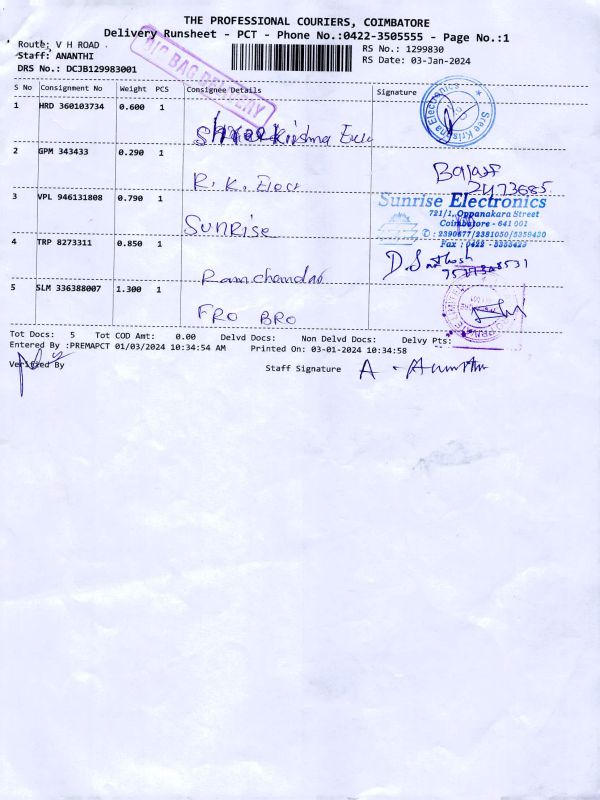 THE PROFESSIONAL COURIERS, COIMBATORE
Delivery Runsheet - PCT - Phone No.:0422-3505555 - Page No.:1
Route: V H ROAD
Staff: ANANTHI
DRS No.: DCJB129983001
BIG BAG DELIVERY
RS No.: 1299830
RS Date: 03-Jan-2024
S No Consignment No Weight PCS Consignee Details Signature
1 HRD 360103734 0.600 1
Shree Krishna Elec
Sree Krisna Electronics
2 GPM 343433 0.290 1
R. K. Elect
Balaji
3 VPL 946131808 0.790 1
Sunrise
Sunrise Electronics
721/1, Oppanakara Street
Coimbatore - 641 001
✆ : 2390677/2381050/5359420
Fax : 0422 -
4 TRP 8273311 0.850 1
Ramchandar
D. Santhosh
5 SLM 336388007 1.300 1
FRO BRO
Tot Docs: 5 Tot COD Amt: 0.00 Delvd Docs: Non Delvd Docs: Delvy Pts:
Entered By :PREMAPCT 01/03/2024 10:34:54 AM Printed On: 03-01-2024 10:34:58
Verified By
Staff Signature A. Ananthi